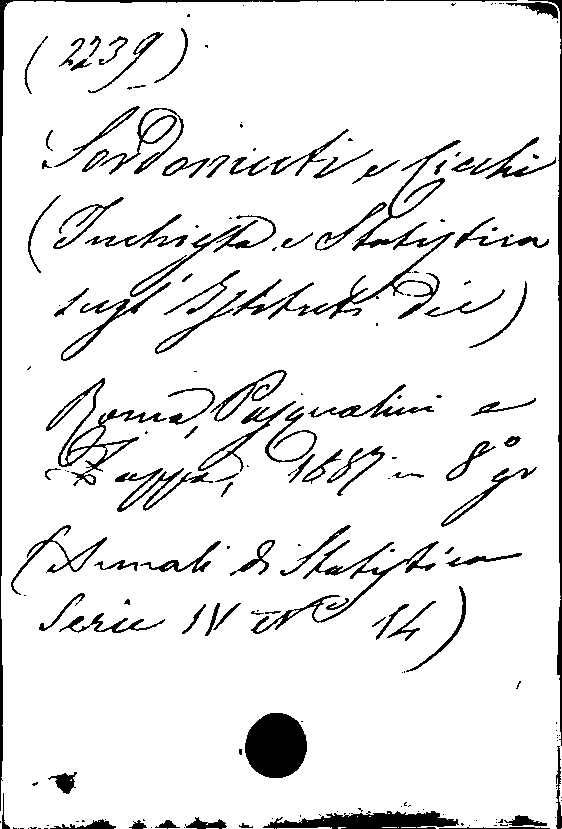 (2239)
Sordomuti e Ciechi
(Inchiesta e Statistica
sugl' Istituti dei)
Roma, Pasqualini e
Zappa, 1887 in 8º gr
(Annali di Statistica
Serie IV Nº 14)